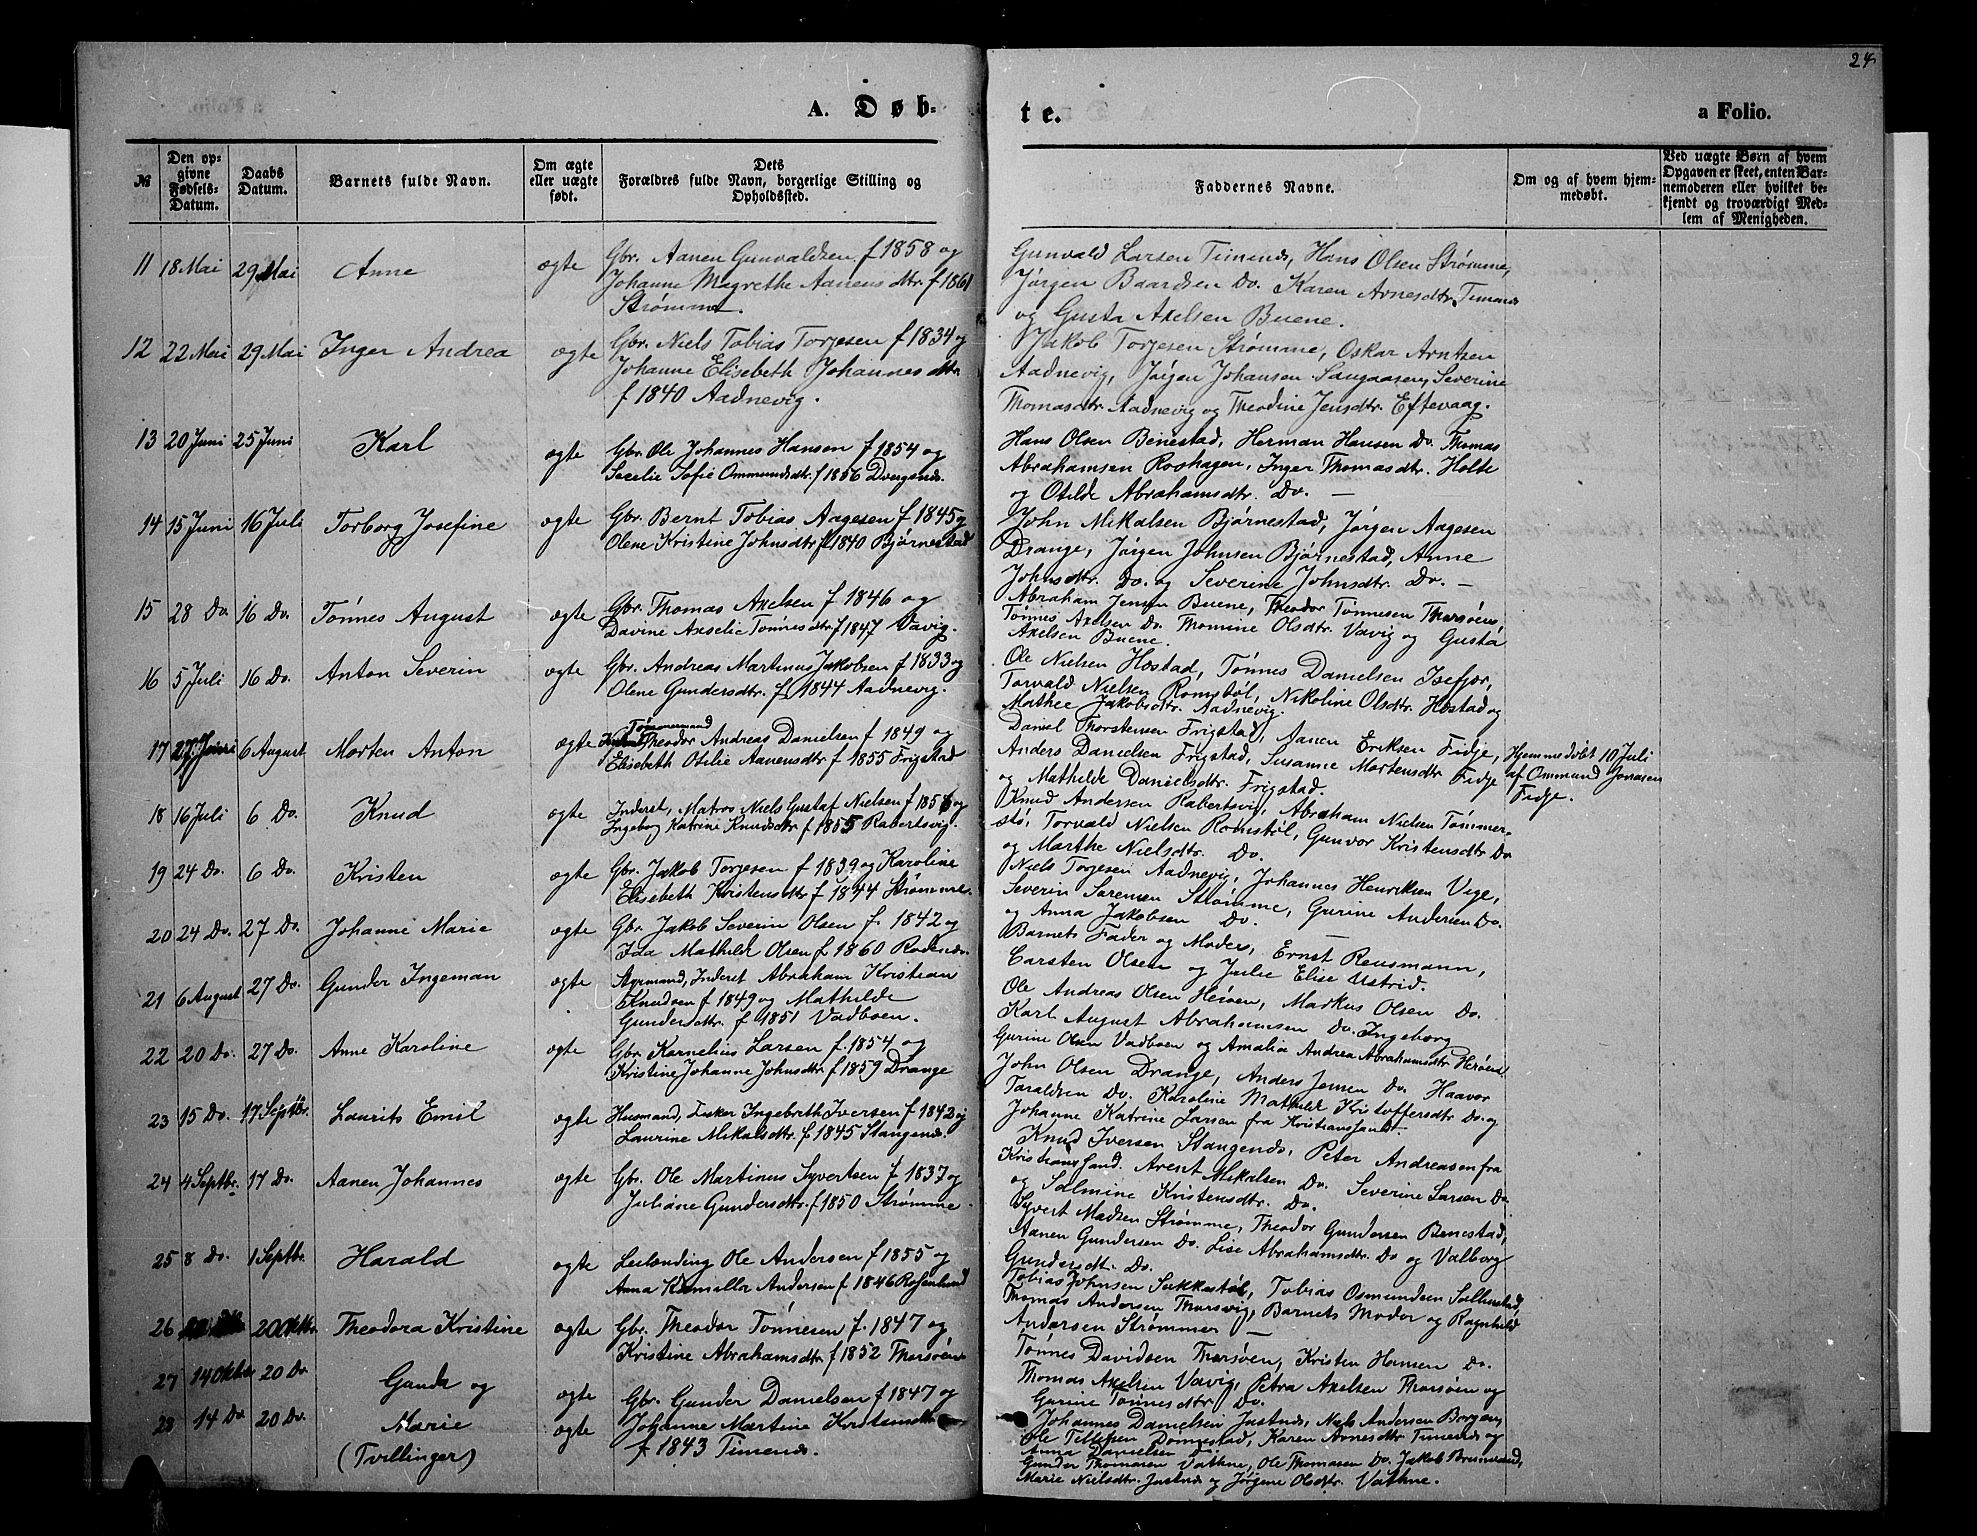 24
A. Døb-
te.
a Folio.
№
Den op-
givne
Fødsels-
Datum.
Daabs
Datum.
Barnets fulde Navn.
Om ægte
eller uægte
født.
Dets
Forældres fulde Navn, borgerlige Stilling og
Opholdssted.
Faddernes Navne.
Om og af hvem hjem-
medøbt.
Ved uægte Børn af hvem
Opgaven er skeet, enten Bar-
nemoderen eller hvilket be-
kjendt og troværdigt Med-
lem af Menigheden.
11 18 Mai 29 Mai Anne ægte Gbr. Aanen Gunvaldsen f 1858 og
Johanne Magrethe Aanensdtr. f 1861
Strømme.
Gunvald Larsen Timenes, Hans Olsen Strømme,
Jørgen Baardsen Do. Karen Arnesdtr. Timenes
og Gusta Axelsen Buene.
12 22 Mai 29 Mai Inger Andrea ægte Gbr. Niels Tobias Torjesen f 1834 og
Johanne Elisebeth Johannesdtr.
f 1840 Aadnevig.
Jakob Torjesen Strømme, Oskar Arntsen
Aadnevig, Jørgen Johansen Saugaasen, Severine
Thomasdtr. Aadnevig og Theodine Jensdtr. Eftevaag.
13 20 Juni 25 Juni Karl ægte Gbr. Ole Johannes Hansen f 1854 og
Secelie Sofie Ommundsdtr. f 1856 Dvergsnes.
Hans Olsen Benestad, Herman Hansen Do. Thomas
Abrahamsen Roshagen, Inger Thomasdtr. Holte
og Otilde Abrahamsdtr. Do. —
14 15 Juni 16 Juli Torborg Josefine ægte Gbr. Bernt Tobias Aagesen f 1845 og
Olene Kristine Johnsdtr. f 1840 Bjørnestad
John Mikalsen Bjørnestad, Jørgen Aagesen
Drange, Jørgen Johnsen Bjørnestad, Anne
Johnsdtr. Do. og Severine Johnsdtr. Do. —
15 28 Do. 16 Do. Tønnes August ægte Gbr. Thomas Axelsen f 1846 og
Davine Axselie Tønnesdtr. f 1847 Vavig.
Abraham Jensen Buene, Theodor Tønnesen Thorsøen,
Tønnes Axelsen Do. Thomine Olsdtr. Vavig og Gusta
Axelsen Buene.
16 5 Juli 16 Do. Anton Severin ægte Gbr. Andreas Martinus Jakobsen f 1833 og
Olene Gundersdtr. f 1844 Aadnevig.
Ole Nielsen Høstad, Tønnes Danielsen Isefjær,
Torvald Nielsen Romstøl, Nikoline Olsdtr. Høstad og
Mathee Jakobsdtr. Aadnevig.
17 27 Juni 6 August Morten Anton ægte Tømmermand
Theodor Andreas Danielsen f 1849 og
Elisebeth Otilie Aanensdtr f 1855 Frigstad
Daniel Thorstensen Frigstad, Aanen Eriksen Fidje,
Anders Danielsen Frigstad, Susanne Mortensdtr Fidje
og Mathilde Danielsdtr. Frigstad.
Hjemmedøbt 10 Juli
af Ommund Jonasen
Fidje.
18 16 Juli 6 Do. Knud ægte Inderst, Matros Niels Gustaf Nielsen f 1856 og
Ingeborg Katrine Knudsdtr f 1855 Rabertsvig.
Knud Andersen Rabertsvig, Abraham Nielsen Tømmer-
stø, Torvald Nielsen Romstøl, Gunvor Kristensdtr Do
og Marthe Nielsdtr. Do.
19 24 Do. 6 Do. Kristen ægte Gbr. Jakob Torjesen f 1839 og Karoline
Elisebeth Kristensdtr f 1844 Strømme.
Niels Torjesen Aadnevig, Johannes Henriksen Vige,
Severin Sørensen Strømme, Gurine Andersen Do.
og Anna Jakobsen Do.
20 24 Do. 27 Do. Johanne Marie ægte Gbr. Jakob Severin Olsen f. 1842 og
Ida Mathilde Olsen f 1860 Rodenes.
Barnets Fader og Moder, Ernst Reusmann,
Carsten Olsen og Julie Elise Ustrid.
21 6 August 27 Do. Gunder Ingeman ægte Styrmand, Inderst Abraham Kristian
Knudsen f 1849 og Mathilde
Gundersdtr. f 1851 Vadboen.
Ole Andreas Olsen Herøen, Markus Olsen Do.
Karl August Abrahamsen Do. Ingeborg
Gurine Olsen Vadboen og Amalia Andrea Abrahamsdtr Herøen.
22 20 Do. 27 Do. Anne Karoline ægte Gbr. Kornelius Larsen f. 1854 og
Kristine Johanne Johnsdtr. f 1859 Drange
John Olsen Drange, Anders Jensen Do. Haavor
Taraldsen Do. Karoline Mathilde Kristoffersdtr Do. og
Johanne Katrine Larsen fra Kristianssand.
23 15 Do. 17 Septbr. Laurits Emil ægte Husmand, Fisker Ingebreth Iversen f 1842 og
Laurine Mikalsdtr. f 1845 Stangenes.
Knud Iversen Stangenes, Peter Andreasen fra
Kristianssand. Arent Mikalsen Do. Severine Larsen Do
og Salmine Kristensdtr. Do.
24 4 Septbr. 17 Do. Aanen Johannes ægte Gbr. Ole Martinus Syvertsen f. 1837 og
Juliane Gundersdtr. f 1850 Strømme.
Syvert Madsen Strømme, Theodor Gundersen Benestad,
Aanen Gundersen Do. Lise Abrahamsdtr. Do og Valborg
Gundersdt. Do.
25 8 Do. 1 Septbr. Harald ægte Leilænding Ole Andersen f 1855 og
Anna Kamilla Andersen f 1846 Rosenlund
Tobias Johnsen Sukkestøl, Tobias Osmundsen
Thomas Andersen Thorsvig, Barnets Moder og Ragnhild
Andersen Strømme —
26 20 Oktbr. Theodora Kristine ægte Gbr. Theodor Tønnesen f. 1847 og
Kristine Abrahamsdtr f 1852 Thorsøen.
Tønnes Davidsen Thorsøen, Kristen Hansen Do.
Thomas Axelsen Vavig, Petra Axelsen Thorsøen og
Gurine Tønnesdtr. Do.
27 14 Oktbr 20 Do Gunda og ægte Gbr. Gunder Danielsen f 1847 og
28 14 Do 20 Do. Marie ægte Johanne Martine Kristensdtr.
(Tvillinger) f 1843 Timenes.
Johannes Danielsen Justnes, Niels Andersen Borgen,
Ole Tellefsen Dønnestad, Karen Arnesdtr Timenes og
Anna Danielsen Do.
Gunder Thomasen Vathne, Ole Thomasen Do. Jakob Brunvand,
Marie Nielsdtr. Justnes og Jørgine Olsdtr. Vathne.